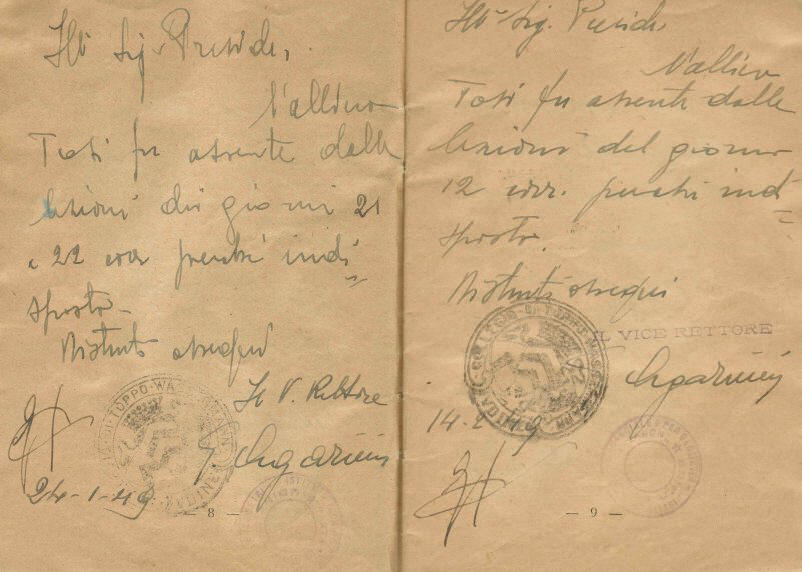 Ill Sig. Preside,
l'allievo
Tosi fu assente dalle
lezioni dei giorni 21
e 22 corr perché indi=
sposto.
Distinti ossequi
Il V. Rettore
24-1-49
- 8 -
Ill Sig. Preside
l'allievo
Tosi fu assente dalle
lezioni del giorno
12 corr. perché indi=
sposto.
Distinti ossequi
IL VICE RETTORE
- 9 -